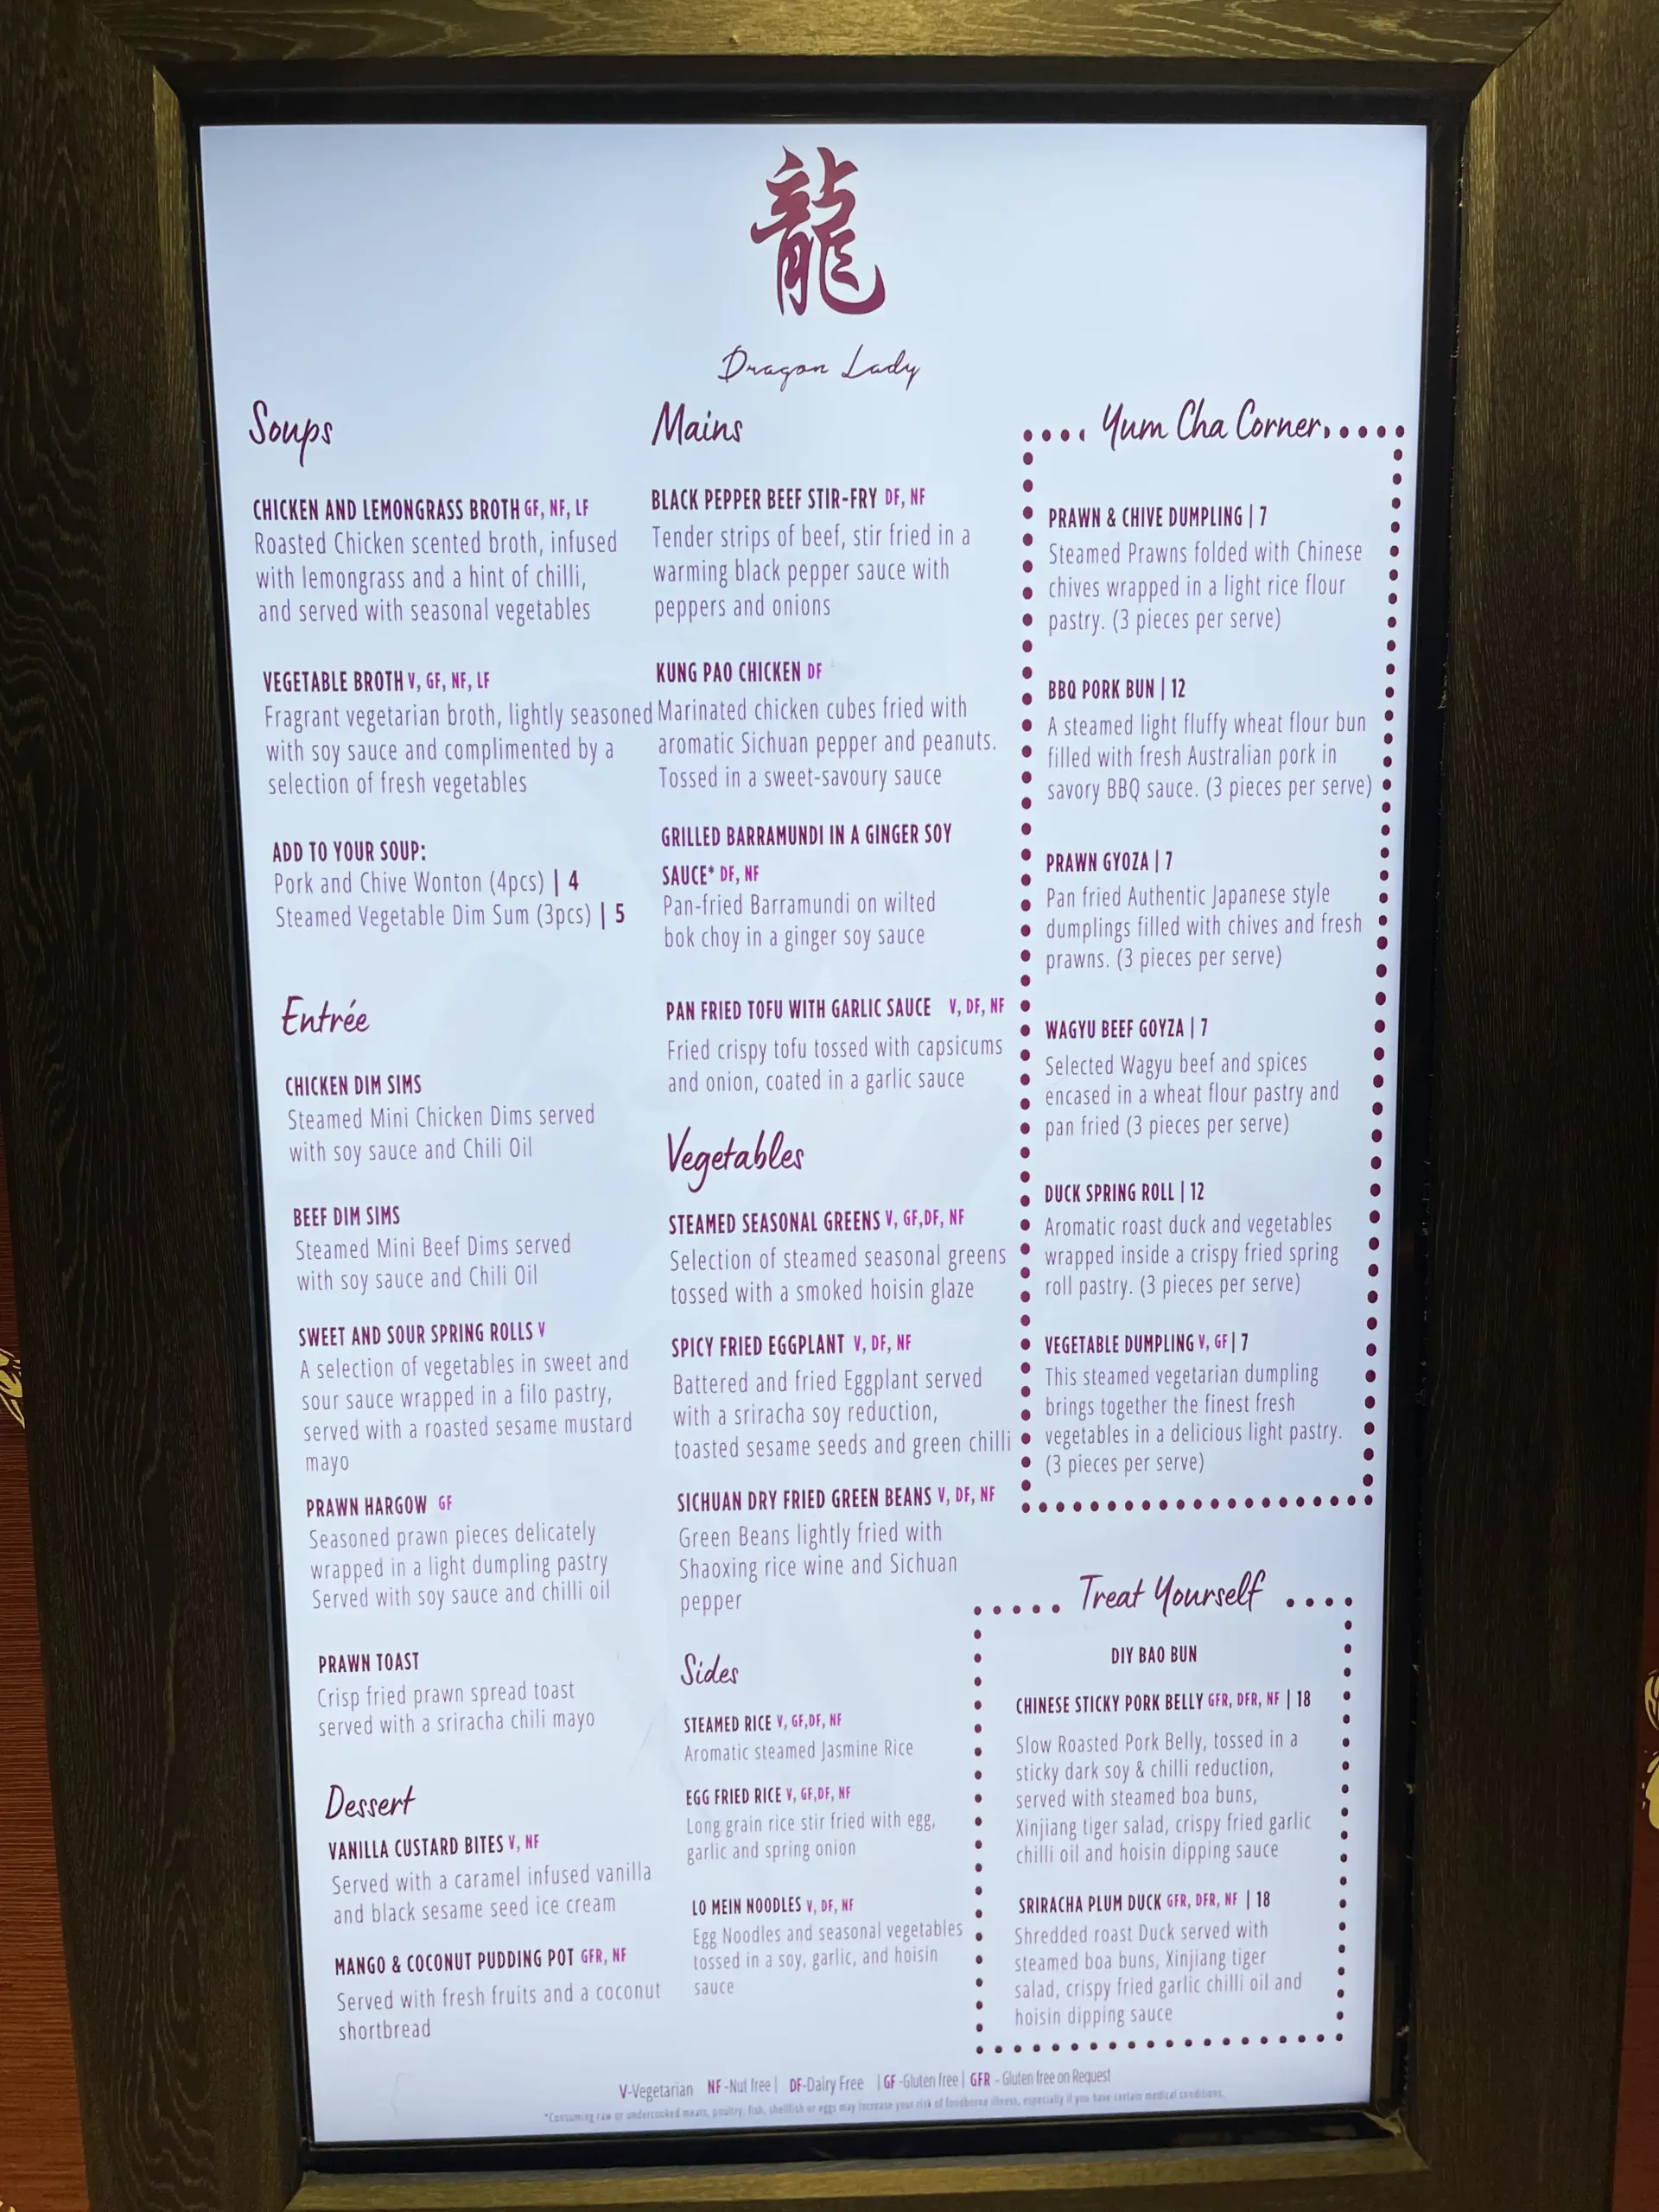 龍
Dragon Lady
Soups
CHICKEN AND LEMONGRASS BROTH GF, NF, LF
Roasted Chicken scented broth, infused
with lemongrass and a hint of chilli,
and served with seasonal vegetables
VEGETABLE BROTH V, GF, NF, LF
Fragrant vegetarian broth, lightly seasoned
with soy sauce and complimented by a
selection of fresh vegetables
ADD TO YOUR SOUP:
Pork and Chive Wonton (4pcs) | 4
Steamed Vegetable Dim Sum (3pcs) | 5
Entrée
CHICKEN DIM SIMS
Steamed Mini Chicken Dims served
with soy sauce and Chili Oil
BEEF DIM SIMS
Steamed Mini Beef Dims served
with soy sauce and Chili Oil
SWEET AND SOUR SPRING ROLLS V
A selection of vegetables in sweet and
sour sauce wrapped in a filo pastry,
served with a roasted sesame mustard
mayo
PRAWN HARGOW GF
Seasoned prawn pieces delicately
wrapped in a light dumpling pastry
Served with soy sauce and chilli oil
PRAWN TOAST
Crisp fried prawn spread toast
served with a sriracha chili mayo
Dessert
VANILLA CUSTARD BITES V, NF
Served with a caramel infused vanilla
and black sesame seed ice cream
MANGO & COCONUT PUDDING POT GFR, NF
Served with fresh fruits and a coconut
shortbread
Mains
BLACK PEPPER BEEF STIR-FRY DF, NF
Tender strips of beef, stir fried in a
warming black pepper sauce with
peppers and onions
KUNG PAO CHICKEN DF
Marinated chicken cubes fried with
aromatic Sichuan pepper and peanuts.
Tossed in a sweet-savoury sauce
GRILLED BARRAMUNDI IN A GINGER SOY
SAUCE* DF, NF
Pan-fried Barramundi on wilted
bok choy in a ginger soy sauce
PAN FRIED TOFU WITH GARLIC SAUCE V, DF, NF
Fried crispy tofu tossed with capsicums
and onion, coated in a garlic sauce
Vegetables
STEAMED SEASONAL GREENS V, GF,DF, NF
Selection of steamed seasonal greens
tossed with a smoked hoisin glaze
SPICY FRIED EGGPLANT V, DF, NF
Battered and fried Eggplant served
with a sriracha soy reduction,
toasted sesame seeds and green chilli
SICHUAN DRY FRIED GREEN BEANS V, DF, NF
Green Beans lightly fried with
Shaoxing rice wine and Sichuan
pepper
Sides
STEAMED RICE V, GF,DF, NF
Aromatic steamed Jasmine Rice
EGG FRIED RICE V, GF,DF, NF
Long grain rice stir fried with egg,
garlic and spring onion
LO MEIN NOODLES V, DF, NF
Egg Noodles and seasonal vegetables
tossed in a soy, garlic, and hoisin
sauce
Yum Cha Corner
PRAWN & CHIVE DUMPLING | 7
Steamed Prawns folded with Chinese
chives wrapped in a light rice flour
pastry. (3 pieces per serve)
BBQ PORK BUN | 12
A steamed light fluffy wheat flour bun
filled with fresh Australian pork in
savory BBQ sauce. (3 pieces per serve)
PRAWN GYOZA | 7
Pan fried Authentic Japanese style
dumplings filled with chives and fresh
prawns. (3 pieces per serve)
WAGYU BEEF GOYZA | 7
Selected Wagyu beef and spices
encased in a wheat flour pastry and
pan fried (3 pieces per serve)
DUCK SPRING ROLL | 12
Aromatic roast duck and vegetables
wrapped inside a crispy fried spring
roll pastry. (3 pieces per serve)
VEGETABLE DUMPLING V, GF | 7
This steamed vegetarian dumpling
brings together the finest fresh
vegetables in a delicious light pastry.
(3 pieces per serve)
Treat Yourself
DIY BAO BUN
CHINESE STICKY PORK BELLY GFR, DFR, NF | 18
Slow Roasted Pork Belly, tossed in a
sticky dark soy & chilli reduction,
served with steamed boa buns,
Xinjiang tiger salad, crispy fried garlic
chilli oil and hoisin dipping sauce
SRIRACHA PLUM DUCK GFR, DFR, NF | 18
Shredded roast Duck served with
steamed boa buns, Xinjiang tiger
salad, crispy fried garlic chilli oil and
hoisin dipping sauce
V-Vegetarian NF-Nut free | DF-Dairy Free | GF-Gluten free | GFR - Gluten free on Request
*Consuming raw or undercooked meats, poultry, fish, shellfish or eggs may increase your risk of foodborne illness, especially if you have certain medical conditions.